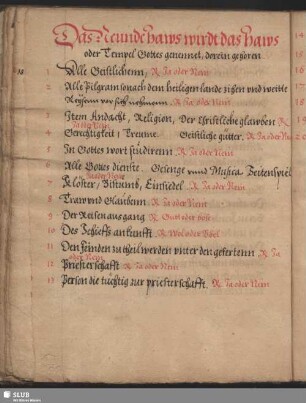 Das Neunde haws wirdt das haws
oder Tempel Gottes genennet, darein gehören
1 Alle Geistlichenn, R. Ja oder Nein
2 Alle Pilgram so nach dem heiligen lande zihen vnd weitte
Reysenn vor sich nehmenn R. Ja oder Nein
3 Item Andacht, Religion, Der Christliche glawben R.
Ja oder Nein
4 Gerechtigkeit, Treume. Geistliche gütter. R. Ja oder Nein
5 In Gottes wort studirenn R. Ja oder Nein
6 Alle Gottes dienste. Gesenge vnnd Musica
Ja oder Nein
7 Kloster, Bistumb, Einsidel R. Ja oder Nein
8 Traw vnd Glaubenn R. Ja oder Nein
9 Der Reisen ausgang R. Gutt oder böse
10 Des Schiefs ankunfft R. Wol oder Übel
11 Den feinden zu theil werden vnter den geferten R. Ja
oder Nein
12 Priesterschafft R. Ja oder Nein
13 Person die tüchtig zur priesterschafft. R. Ja oder Nein
14
15
16
17
18
19
20
SLUB